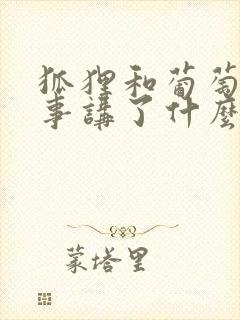 狐狸和葡萄
事講了什麼
蒙塔里